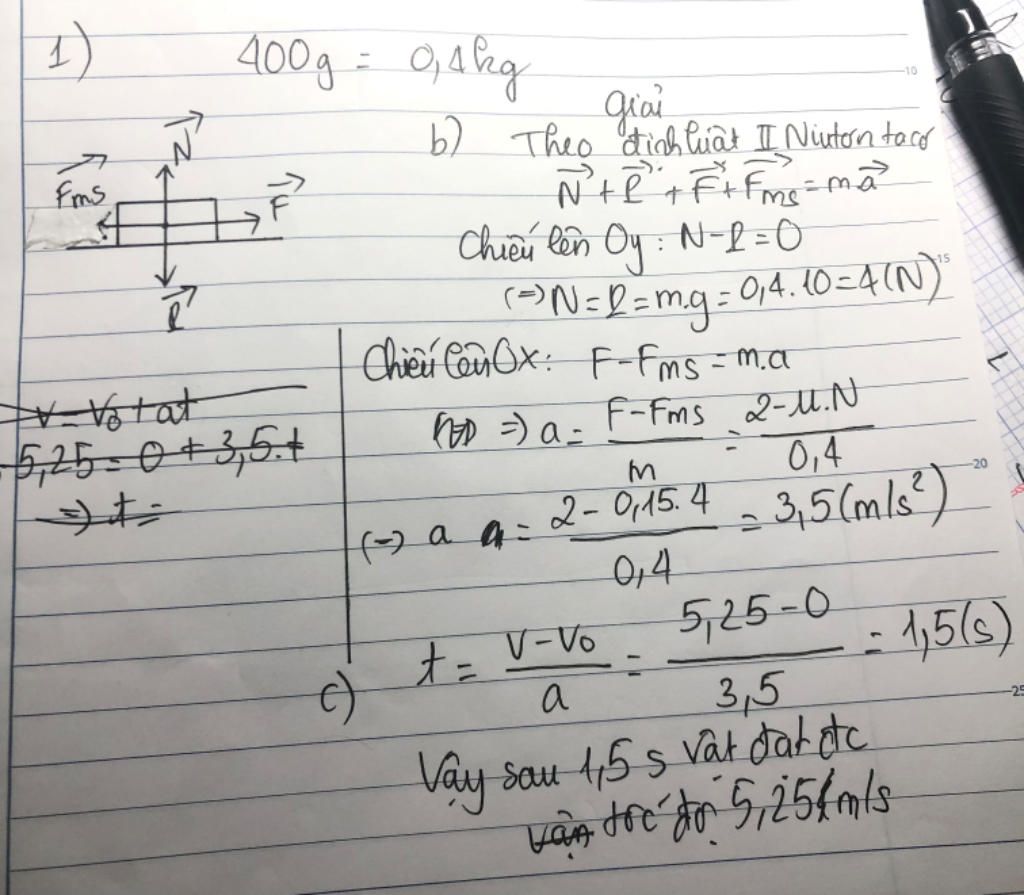 1) 400g = 0,4kg
Giải
b) Theo định luật II Niutơn ta có
N + P + F + Fms = ma
N
Fms
F
P
Chiếu lên Oy: N - P = 0
(=) N = P = m.g = 0,4.10 = 4(N)
Chiếu lên Ox: F - Fms = m.a
=) a = F - Fms / m = 2 - μ.N / 0,4
(=) a = 2 - 0,15.4 / 0,4 = 3,5(m/s²)
v = v0 + at
5,25 = 0 + 3,5.t
=) t =
c) t = v - v0 / a = 5,25 - 0 / 3,5 = 1,5(s)
Vậy sau 1,5s vật đạt đc
vận tốc độ 5,25 m/s
10
15
20
25